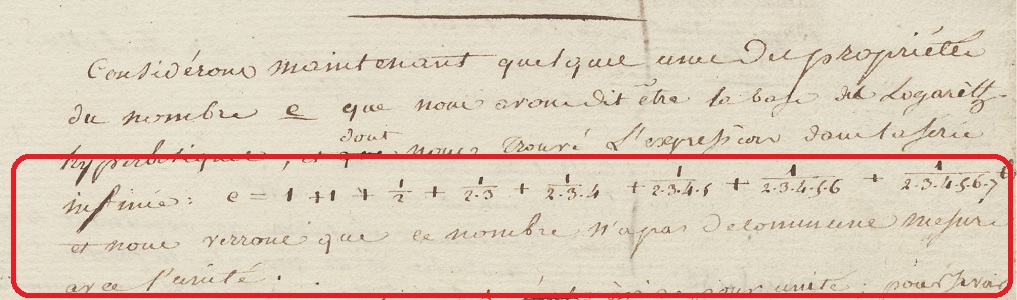 Considérons maintenant quelques unes des propriétés
du nombre e que nous avons dit être la base des Logarith
hyperboliques, et dont nous trouvé L'expression dans la série
infinie: e = 1 + 1 + 1/2 + 1/2.3 + 1/2.3.4 + 1/2.3.4.5 + 1/2.3.4.5.6 + 1/2.3.4.5.6.7
et nous verrons que ce nombre n'a pas de commune mesure
avec l'unité.
pour unité: pour